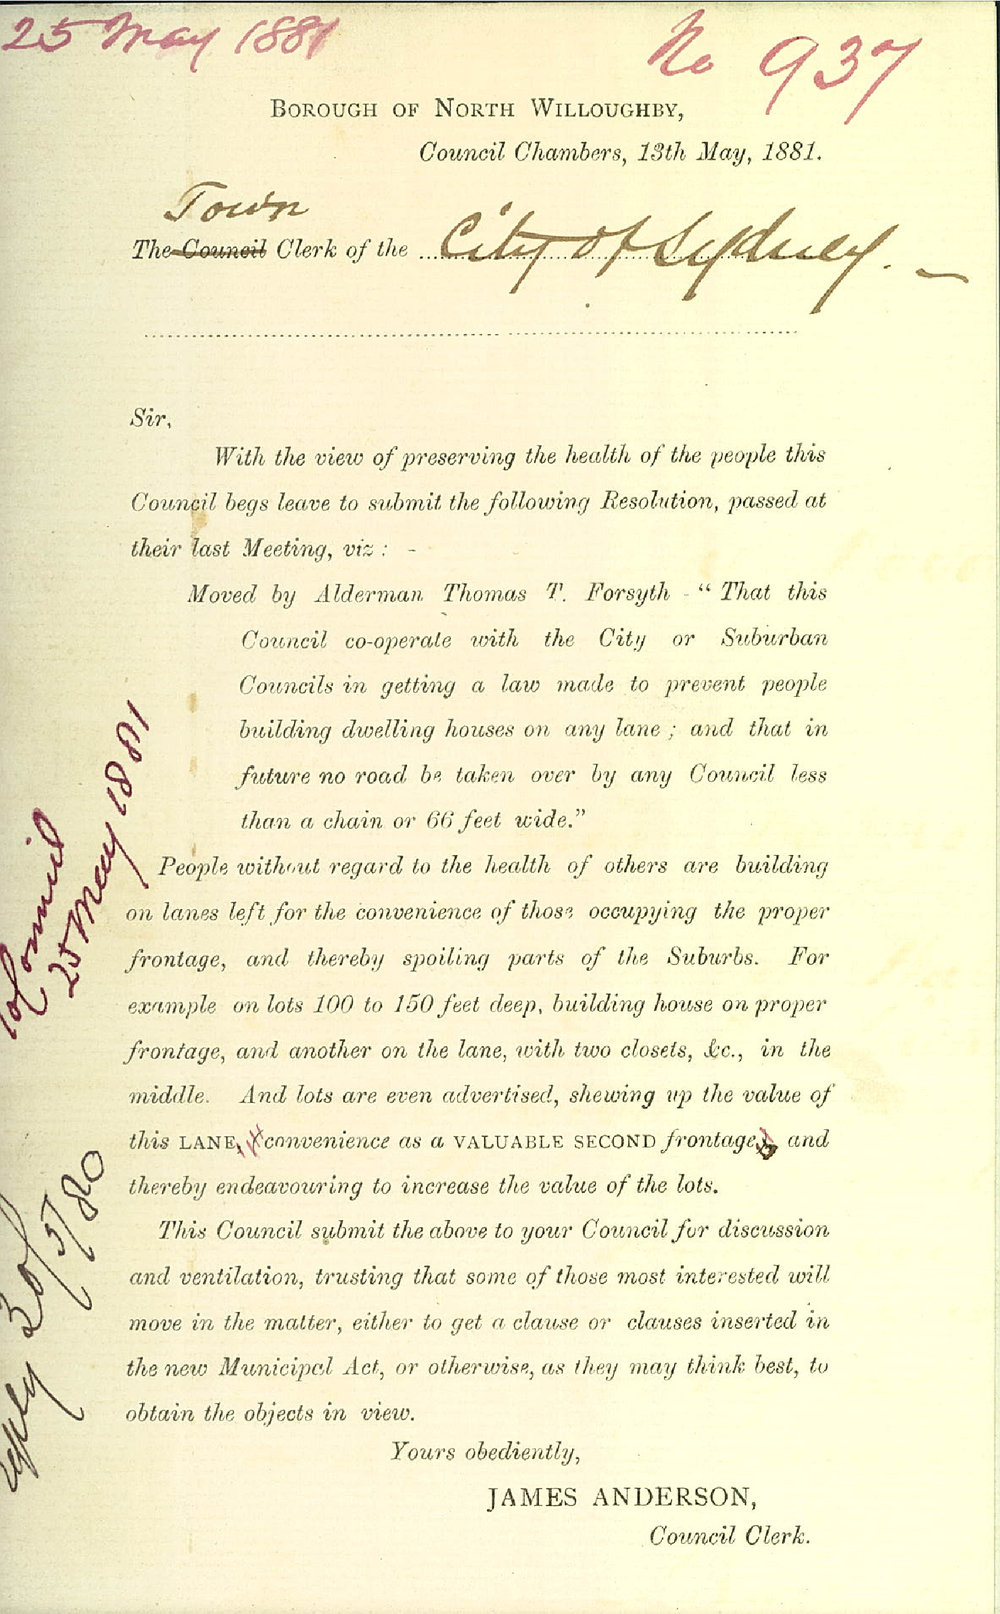 25 May 1881
No 937
BOROUGH OF NORTH WILLOUGHBY,
Council Chambers, 13th May, 1881.
Town
The Council Clerk of the City of Sydney.
Sir,
With the view of preserving the health of the people this
Council begs leave to submit the following Resolution, passed at
their last Meeting, viz: -
Moved by Alderman Thomas T. Forsyth - “ That this
Council co-operate with the City or Suburban
Councils in getting a law made to prevent people
building dwelling houses on any lane ; and that in
future no road be taken over by any Council less
than a chain or 66 feet wide.”
People without regard to the health of others are building
on lanes left for the convenience of those occupying the proper
frontage, and thereby spoiling parts of the Suburbs. For
example on lots 100 to 150 feet deep, building house on proper
frontage, and another on the lane, with two closets, &c., in the
middle. And lots are even advertised, shewing up the value of
this LANE, convenience as a VALUABLE SECOND frontage, and
thereby endeavouring to increase the value of the lots.
This Council submit the above to your Council for discussion
and ventilation, trusting that some of those most interested will
move in the matter, either to get a clause or clauses inserted in
the new Municipal Act, or otherwise, as they may think best, to
obtain the objects in view.
Yours obediently,
JAMES ANDERSON,
Council Clerk.
Council
25 May 1881
30/5/80